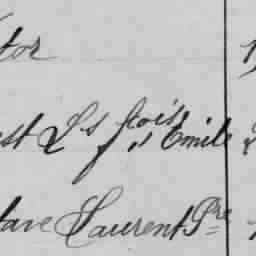 tor
est Ls fois Emile
tave Laurent Pre